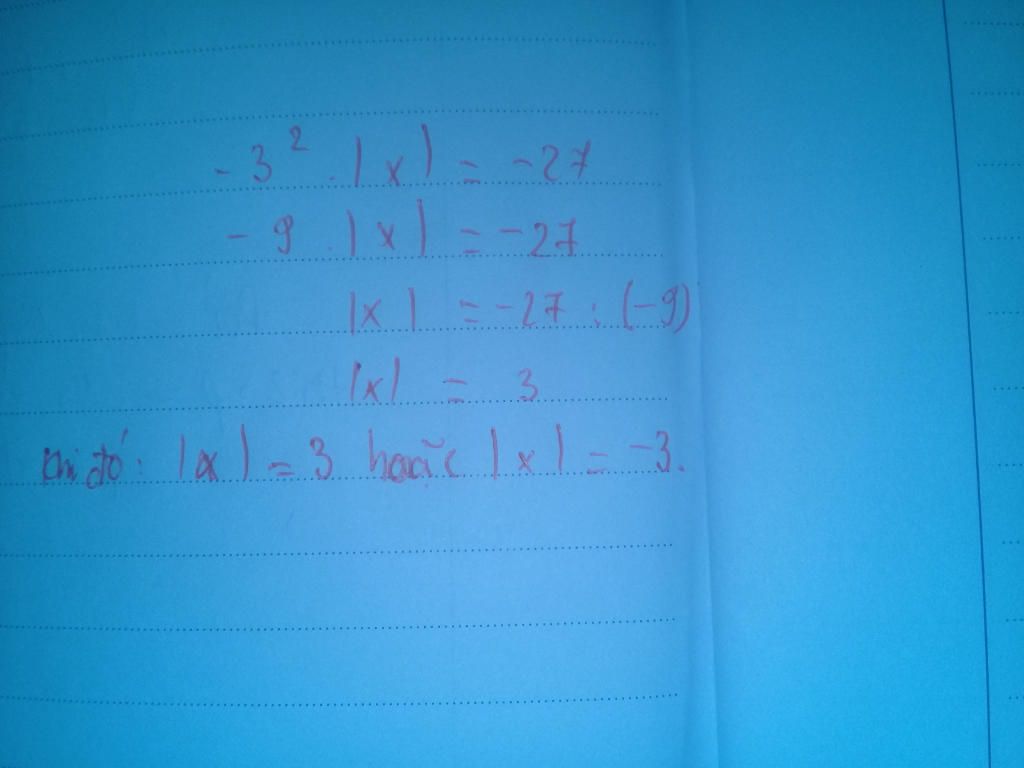 - 3² . |x| = -27
- 9 . |x| = -27
|x| = -27 : (-9)
|x| = 3
Khi đó : |x| = 3 hoặc |x| = -3.